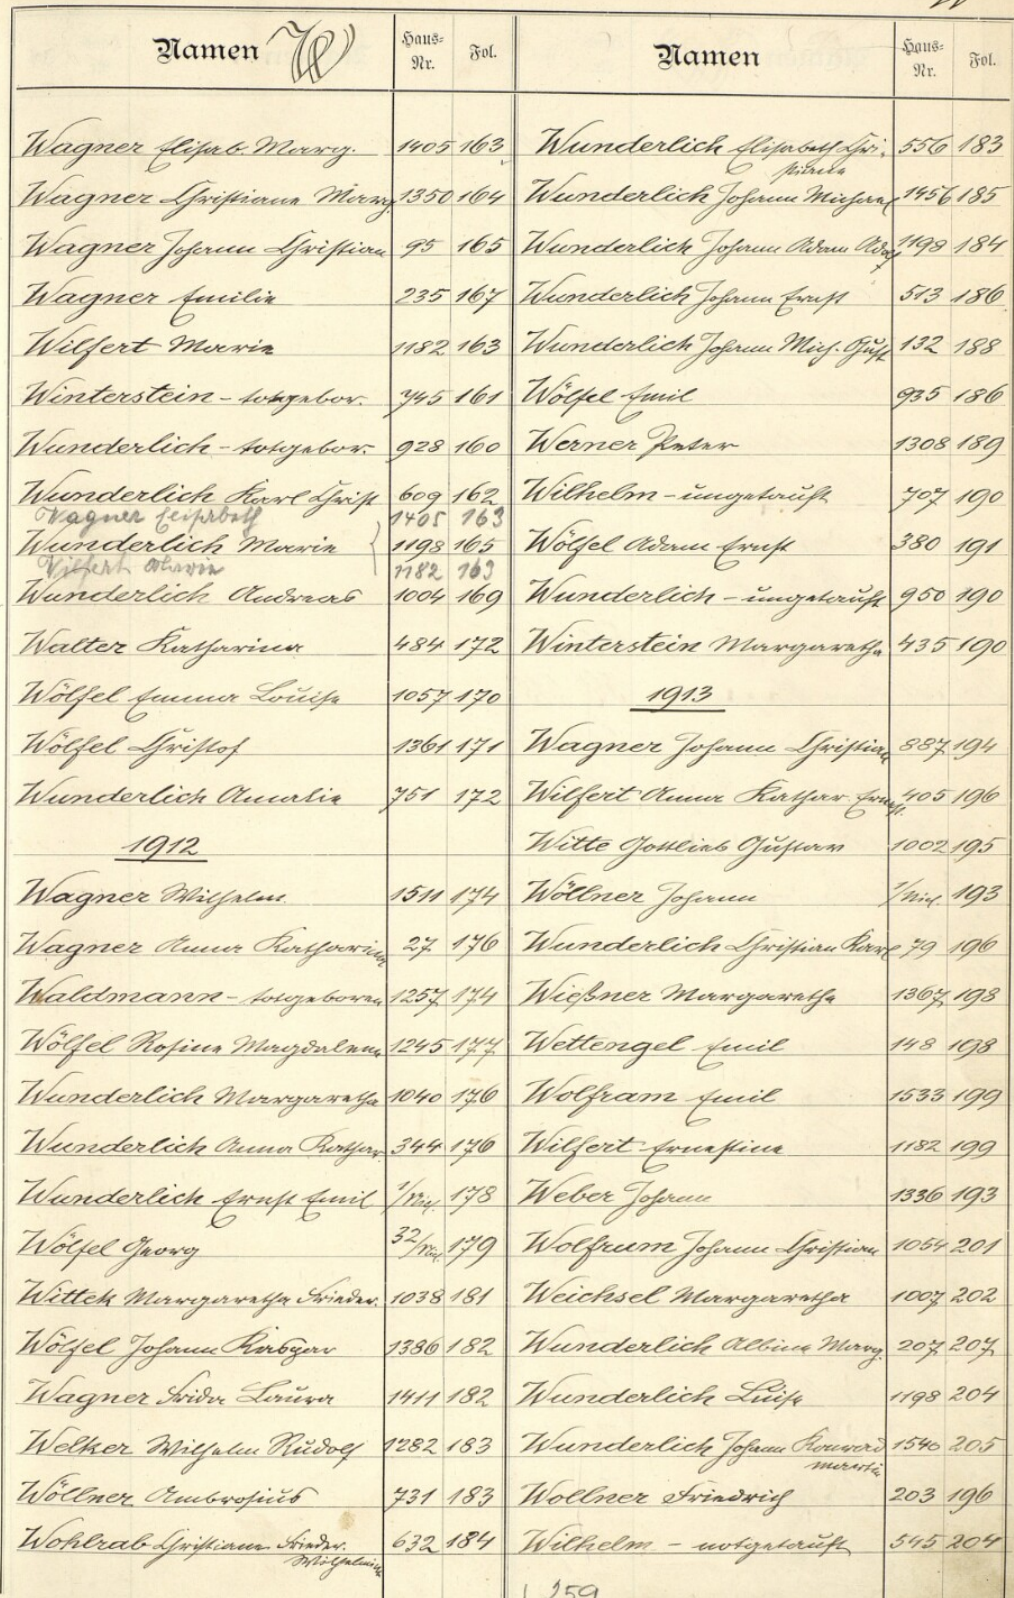 Namen W Haus-Nr. Fol.
Wagner Elisab. Marg. 1405 163
Wagner Christiane Marg. 1350 164
Wagner Johann Christian 95 165
Wagner Emilie 235 167
Wilfert Marie 1182 163
Winterstein - totgebor. 745 161
Wunderlich - totgebor. 928 160
Wunderlich Karl Christ 609 162
Wagner Elisabeth 1405 163
Wunderlich Marie 1198 165
Wilfert Marie 1182 163
Wunderlich Andreas 1004 169
Walter Katharina 484 172
Wölfel Emma Louise 1057 170
Wölfel Christof 1361 171
Wunderlich Amalie 751 172
1912
Wagner Wilhelm 1511 174
Wagner Anna Katharina 27 176
Waldmann - totgeboren 1257 174
Wölfel Rosine Magdalena 1245 177
Wunderlich Margaretha 1040 176
Wunderlich Anna Kathar. 344 176
Wunderlich Ernst Emil 178
Wölfel Georg 179
Wittek Margaretha Frieder. 1038 181
Wölfel Johann Kaspar 1386 182
Wagner Frida Laura 1411 182
Welker Wilhelm Rudolf 1282 183
Wöllner Ambrosius 731 183
Wohlrab Christiane Frieder. 632 184
Wilhelmine
Namen Haus-Nr. Fol.
Wunderlich Elisabeth Chri- 556 183
stiane
Wunderlich Johann Michael 1456 185
Wunderlich Johann Adam 1198 184
Wunderlich Johann Ernst 513 186
Wunderlich Johann Mich. Gust 132 188
Wölfel Emil 935 186
Werner Peter 1308 189
Wilhelm - ungetauft 707 190
Wölfel Adam Ernst 380 191
Wunderlich - ungetauft 950 190
Winterstein Margaretha 435 190
1913
Wagner Johann Christian 887 194
Wilfert Anna Kathar. Ernest. 405 196
Witte Gottlieb Gustav 1002 195
Wöllner Johann 193
Wunderlich Christian Karl 79 196
Wießner Margaretha 1367 198
Wettengel Emil 148 198
Wolfram Emil 1533 199
Wilfert Ernestine 1182 199
Weber Johann 1336 193
Wolfrum Johann Christian 1054 201
Weichsel Margaretha 1007 202
Wunderlich Albine Marg. 207 207
Wunderlich Luise 1198 204
Wunderlich Johann Konrad 1540 205
Martin
Wollner Friedrich 203 196
Wilhelm - notgetauft 545 204
259